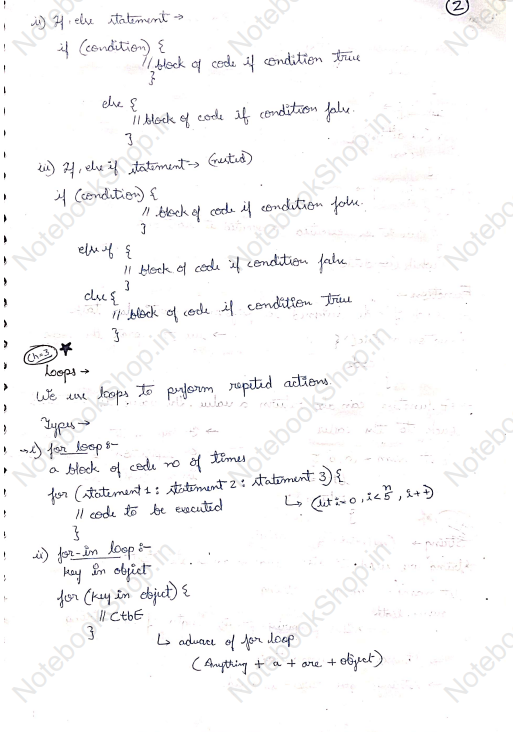 2
ii) If, else statement →
if (condition) {
// block of code if condition true
}
else {
// block of code if condition false.
}
iii) If, else if statement → (nested)
if (condition) {
// block of code if condition false.
}
else if {
// block of code if condition false
}
else {
// block of code if condition true
}
Ch-3 ★
Loops →
We use loops to perform repited actions.
Types →
→ i) for loop :-
a block of code no of times
for (statement 1 : statement 2 : statement 3) {
// code to be executed
↳ (let i = 0, i < 5, i++)
n
}
ii) for-in loop :-
key in object
for (key in object) {
// CtbE
}
↳ advace of for loop
(Anything + a + are + object)
NotebookShop.in